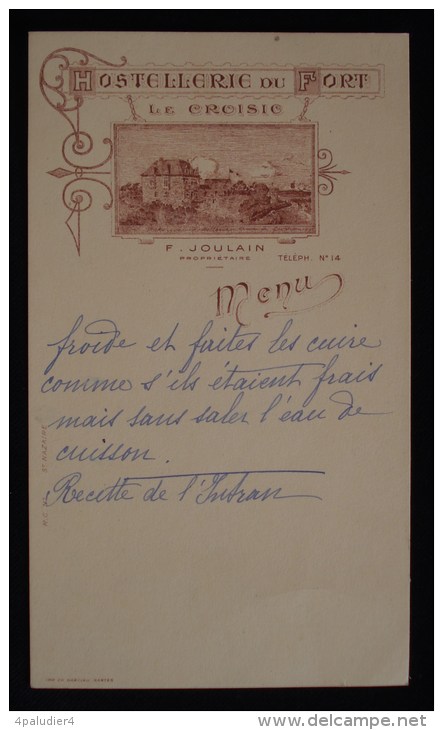 HOSTELLERIE DU FORT
LE CROISIC
F. JOULAIN
PROPRIÉTAIRE
TÉLÉPH. N° 14
Menu
froide et faites les cuire
comme s'ils étaient frais
mais sans saler l'eau de
cuisson.
Recette de l'Intran
ST NAZAIRE
4paludier4
delcampe.net